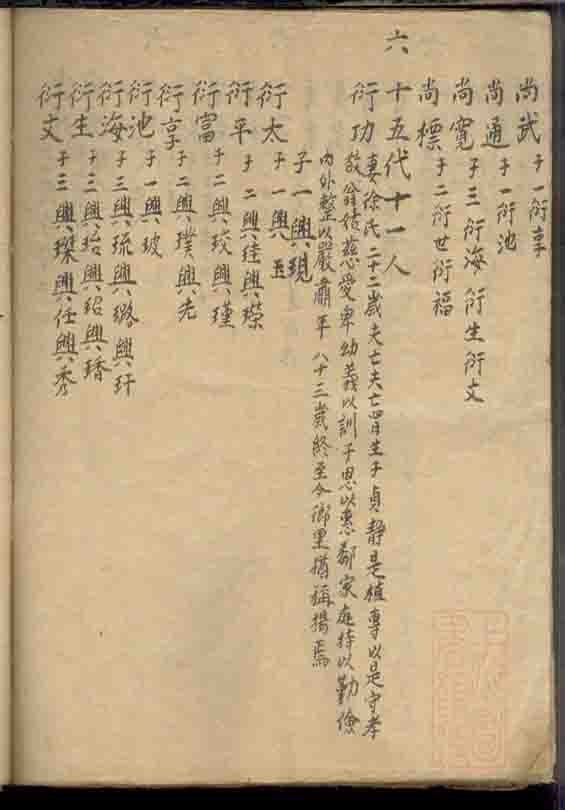 尚武 子一衍享
尚通 子一衍池
尚寬 子三衍海衍生衍文
尚標 子二衍世衍福
六十五代十一人
衍功 妻徐氏二十二歲夫亡夫亡四月生子貞靜是植專以是守孝
敬翁姑慈愛卑幼義以訓子恩以惠鄰家庭持以勤儉
內外整以嚴肅年八十三歲終至今鄉里猶稱揚焉
子一興現
衍太 子一興五
衍平 子二興珪興琛
衍富 子二興玫興瑾
衍享 子二興璞興光
衍池 子一興玻
衍海 子三興琉興璐興玕
衍生 子三興珆興玿興琦
衍文 子三興琛興任興秀